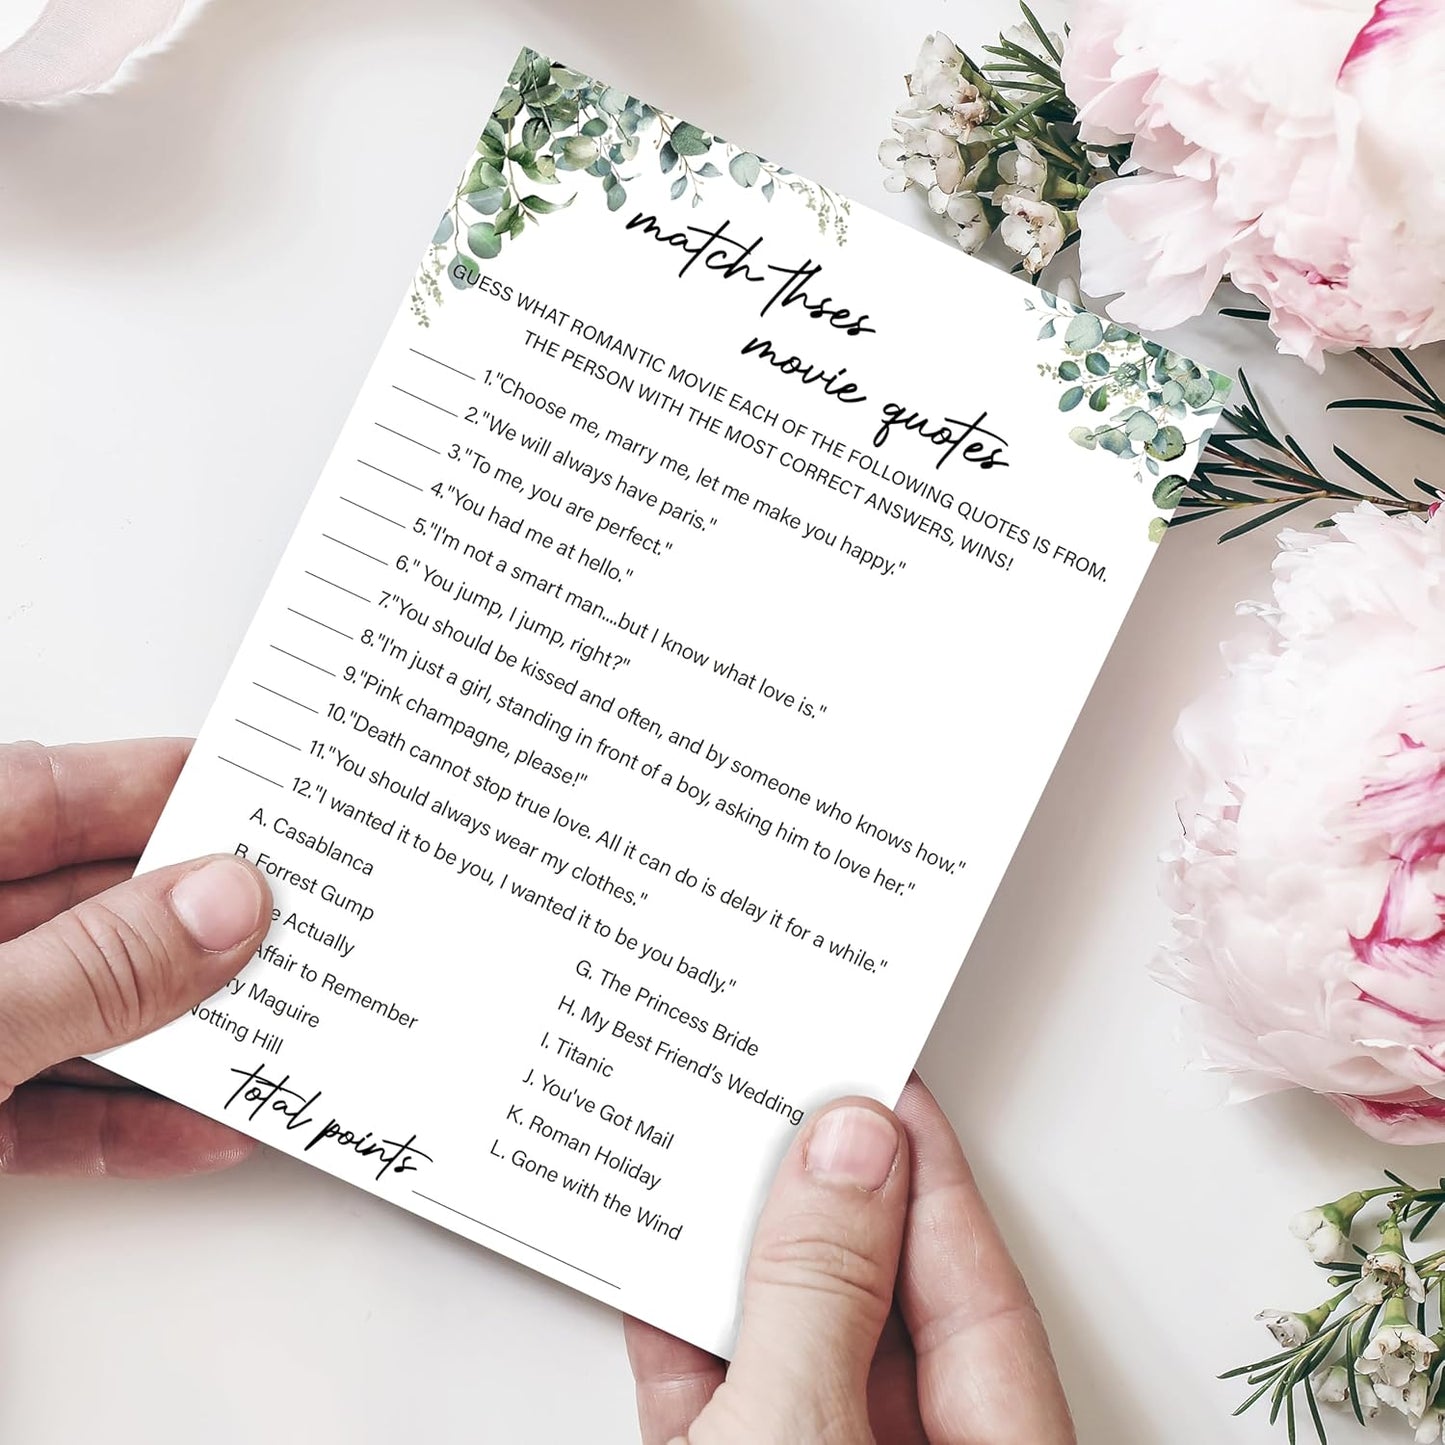 match thses
movie quotes
GUESS WHAT ROMANTIC MOVIE EACH OF THE FOLLOWING QUOTES IS FROM.
THE PERSON WITH THE MOST CORRECT ANSWERS, WINS!
1."Choose me, marry me, let me make you happy."
2."We will always have paris."
3."To me, you are perfect."
4."You had me at hello."
5."I'm not a smart man....but I know what love is."
6." You jump, I jump, right?"
7."You should be kissed and often, and by someone who knows how."
8."I'm just a girl, standing in front of a boy, asking him to love her."
9."Pink champagne, please!"
10."Death cannot stop true love. All it can do is delay it for a while."
11."You should always wear my clothes."
12."I wanted it to be you, I wanted it to be you badly."
A. Casablanca
B. Forrest Gump
e Actually
Affair to Remember
ry Maguire
Notting Hill
G. The Princess Bride
H. My Best Friend's Wedding
I. Titanic
J. You've Got Mail
K. Roman Holiday
L. Gone with the Wind
total points